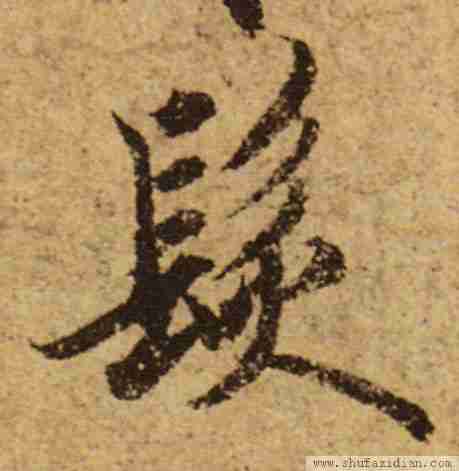 髮
www.shufazidian.com